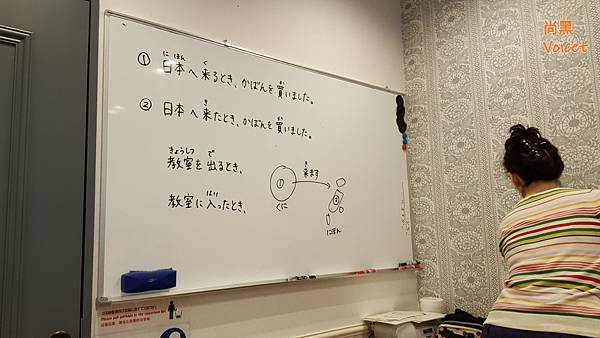 尚黑
Voicet
① 日本へ来るとき、かばんを買いました。
にほん く か
② 日本へ来たとき、かばんを買いました。
き か
きょうしつ で
教室を出るとき、
はい
教室に入ったとき、
き
来ます
①
②
くに
にほん
Please put garbage in the classroom bin.